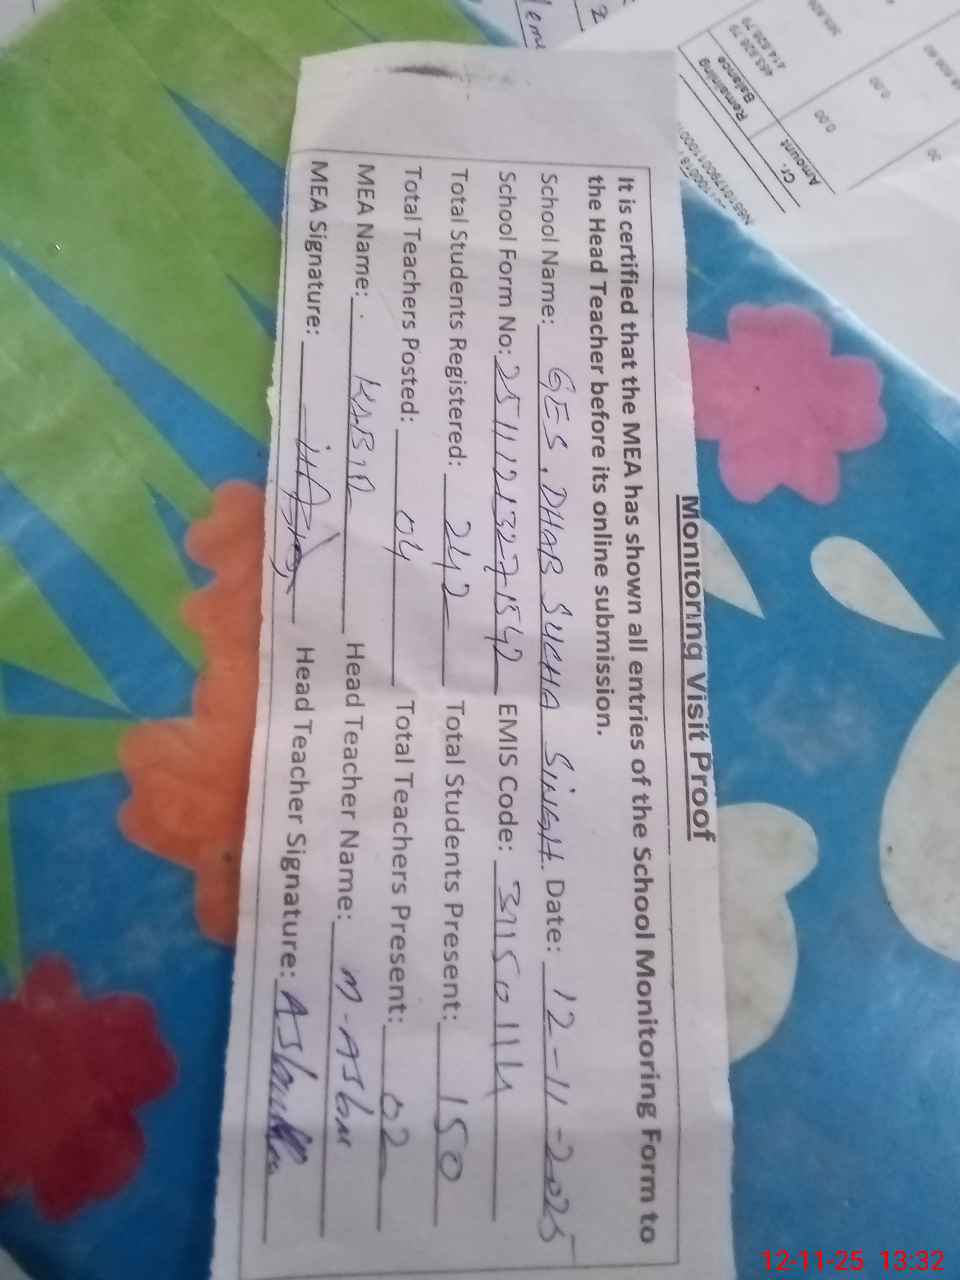 Monitoring Visit Proof
It is certified that the MEA has shown all entries of the School Monitoring Form to
the Head Teacher before its online submission.
School Name: GES. DHAB SUCHA SINGH. Date: 12-11-2025
School Form No: 25111213271542 EMIS Code: 31150114
Total Students Registered: 242 Total Students Present: 150
Total Teachers Posted: 04 Total Teachers Present: 02
MEA Name: KABIR Head Teacher Name: M-ASh
MEA Signature: Head Teacher Signature:
Cr.
Amount
Remaining
Balance
0.00
0.00
12-11-25 13:32